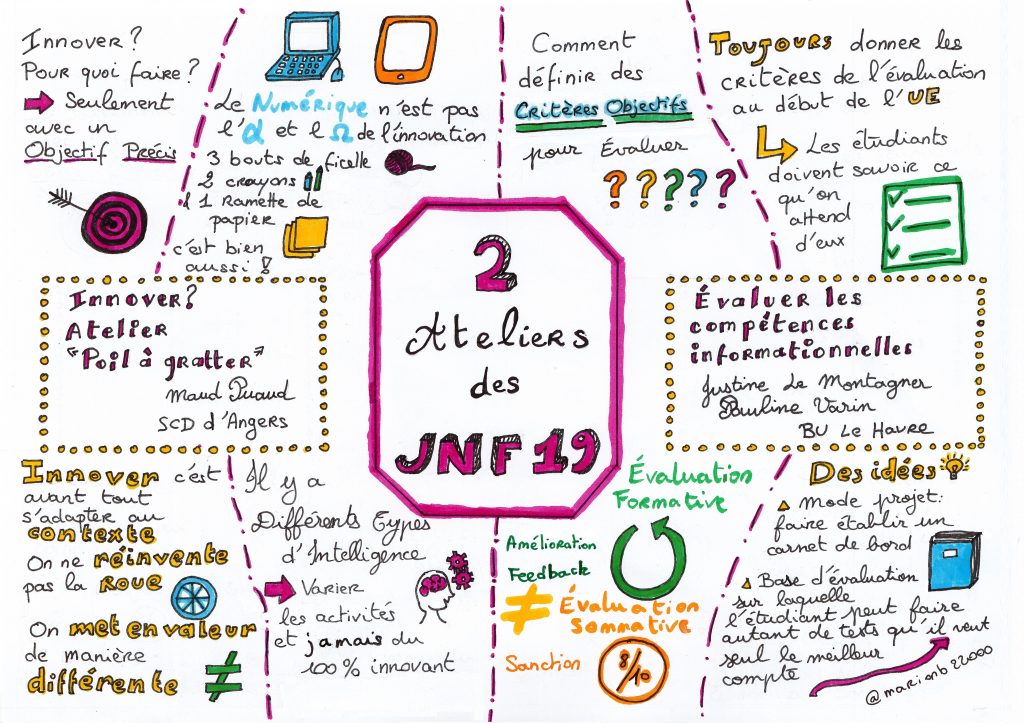 Innover?
Pour quoi faire?
Seulement
avec un
Objectif Précis
Le Numérique n'est pas
l'α et l Ω de l'innovation
3 bouts de ficelle
2 crayons
& 1 Ramette de
papier
c'est bien
aussi!
Comment
définir des
Critères Objectifs
pour Évaluer
? ? ? ? ?
Toujours donner les
critères de l'évaluation
au début de l'UE
Les étudiants
doivent savoir ce
qu'on
attend
d'eux
Innover?
Atelier
"Poil à gratter"
Maud Puaud
SCD d'Angers
2
Ateliers
des
JNF 19
Évaluer les
compétences
informationnelles
Justine Le Montagner
Pauline Varin
BU Le Havre
Innover c'est
avant tout
s'adapter au
contexte
On ne réinvente
pas la Roue
On met en valeur
de manière
différente
≠
Il y a
Différents Types
d'Intelligence
Varier
les activités
et jamais du
100% innovant
Évaluation
Formative
Amélioration
Feedback
≠ Évaluation
Sommative
Sanction
8/10
Des idées
Mode projet:
faire établir un
carnet de bord
Base d'évaluation
sur laquelle
l'étudiant peut faire
autant de tests qu'il veut
seul le meilleur
compte
@marionb22000